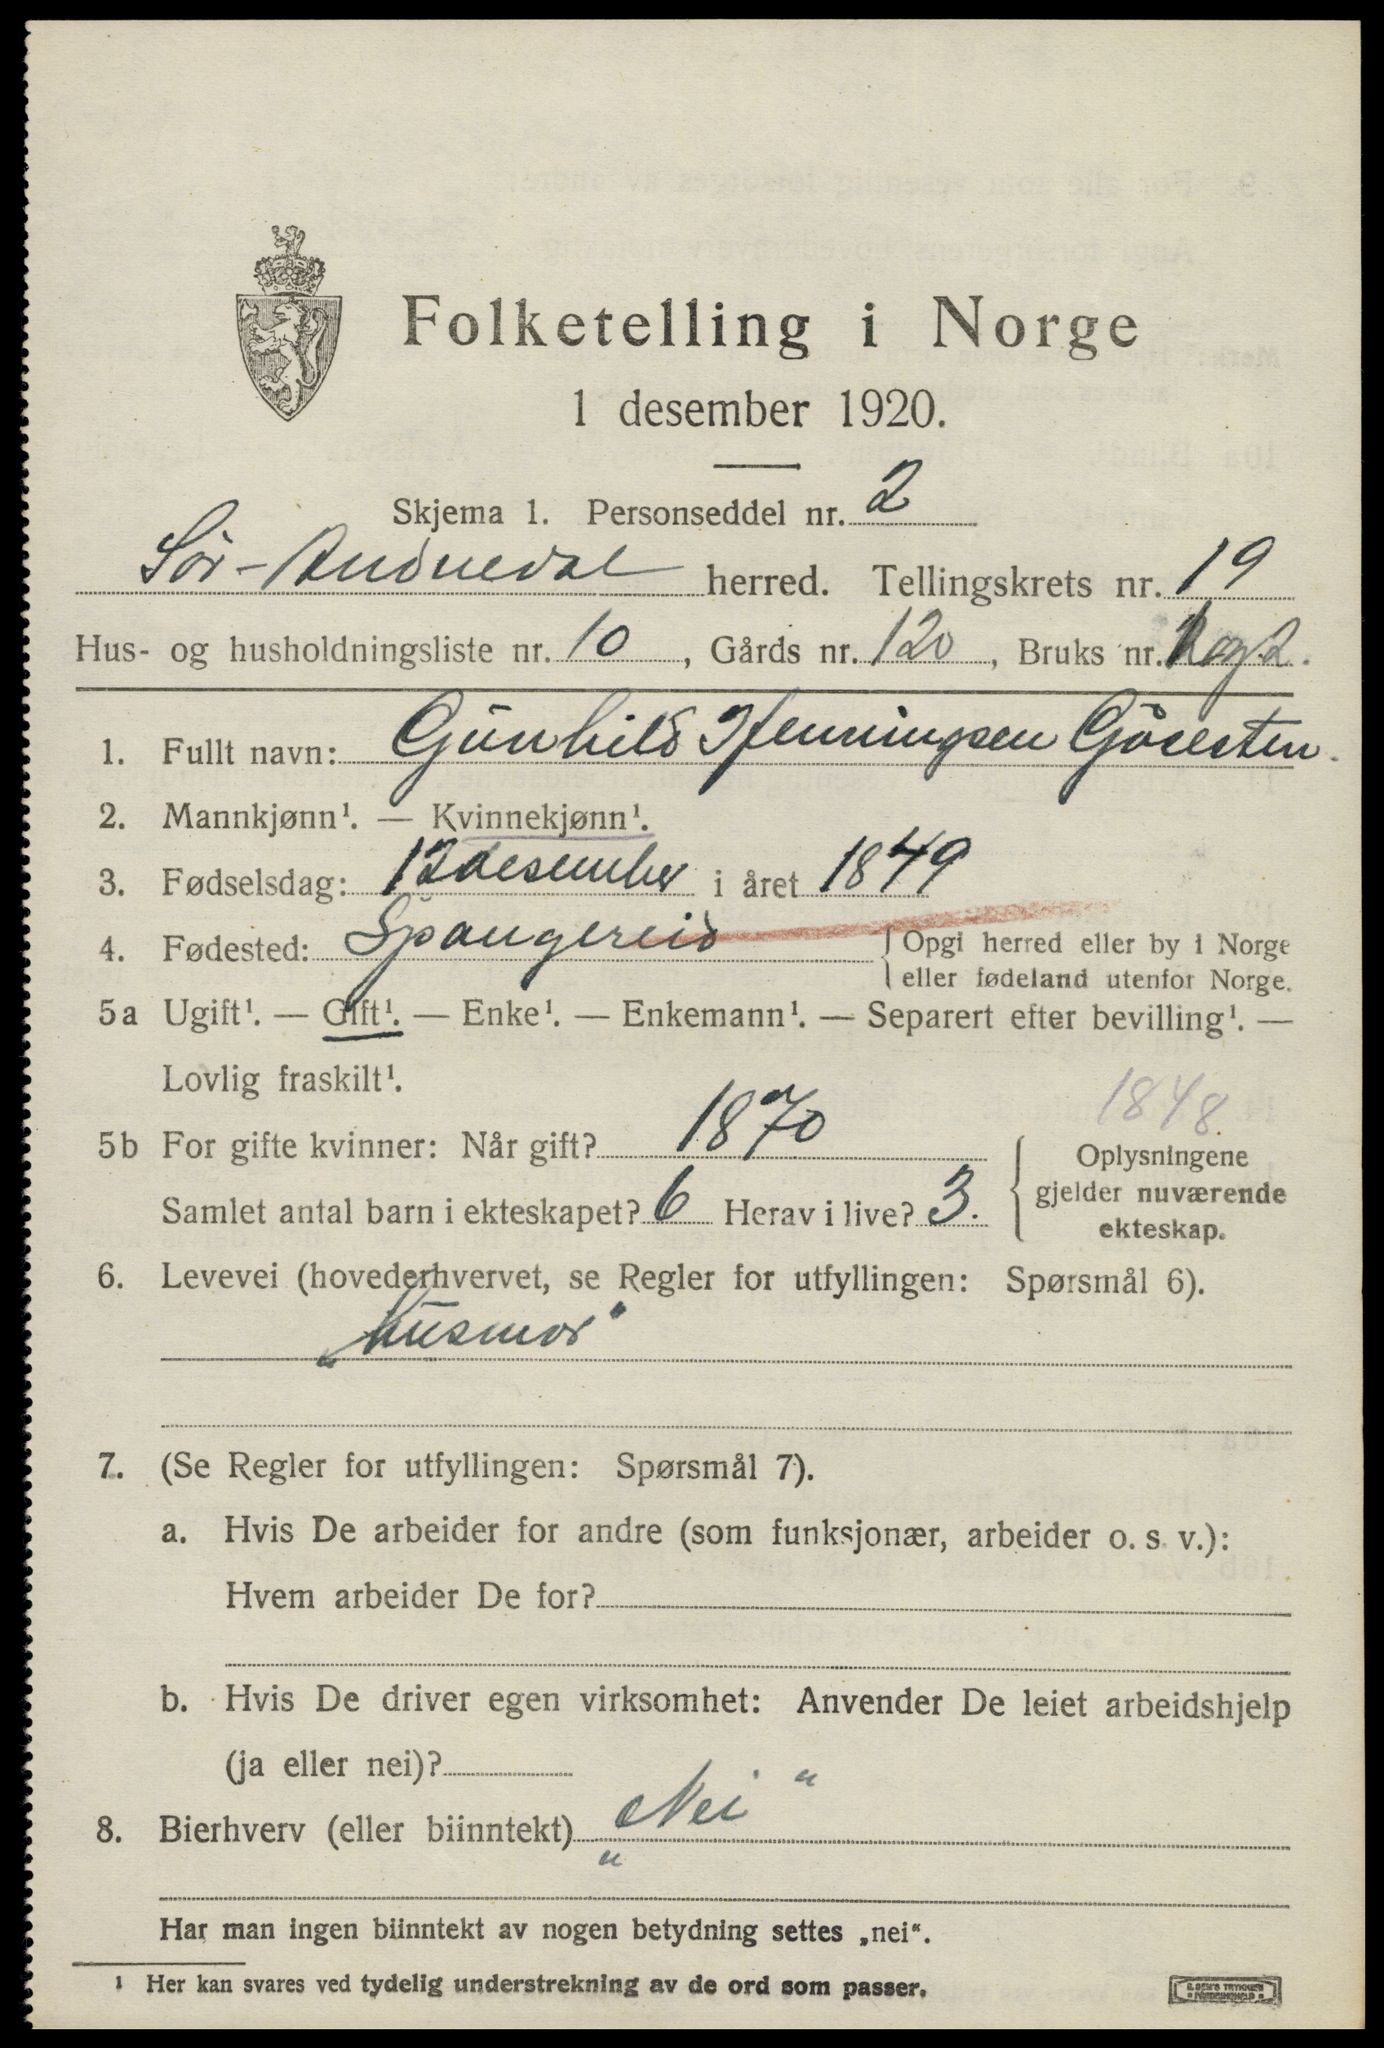 Folketelling i Norge
1 desember 1920.
Skjema 1. Personseddel nr. 2
Sör-Audnedal herred. Tellingskrets nr. 19
Hus- og husholdningsliste nr. 10, Gårds nr. 120, Bruks nr. 1 og 2.
1. Fullt navn: Günhild Henningsen Gösesten.
2. Mannkjønn¹. — Kvinnekjønn¹.
3. Fødselsdag: 12 desember i året 1849
4. Fødested: Spangereid { Opgi herred eller by i Norge
eller fødeland utenfor Norge.
5a Ugift¹. — Gift¹. — Enke¹. — Enkemann¹. — Separert efter bevilling¹. —
Lovlig fraskilt¹.
1848.
5b For gifte kvinner: Når gift? 1870
Samlet antal barn i ekteskapet? 6 Herav i live? 3.
{ Oplysningene
gjelder nuværende
ekteskap.
6. Levevei (hovederhvervet, se Regler for utfyllingen: Spørsmål 6).
„Hüsmor"
7. (Se Regler for utfyllingen: Spørsmål 7).
a. Hvis De arbeider for andre (som funksjonær, arbeider o. s. v.):
Hvem arbeider De for?
b. Hvis De driver egen virksomhet: Anvender De leiet arbeidshjelp
(ja eller nei)?
8. Bierhverv (eller biinntekt) „Nei"
Har man ingen biinntekt av nogen betydning settes „nei".
¹ Her kan svares ved tydelig understrekning av de ord som passer.